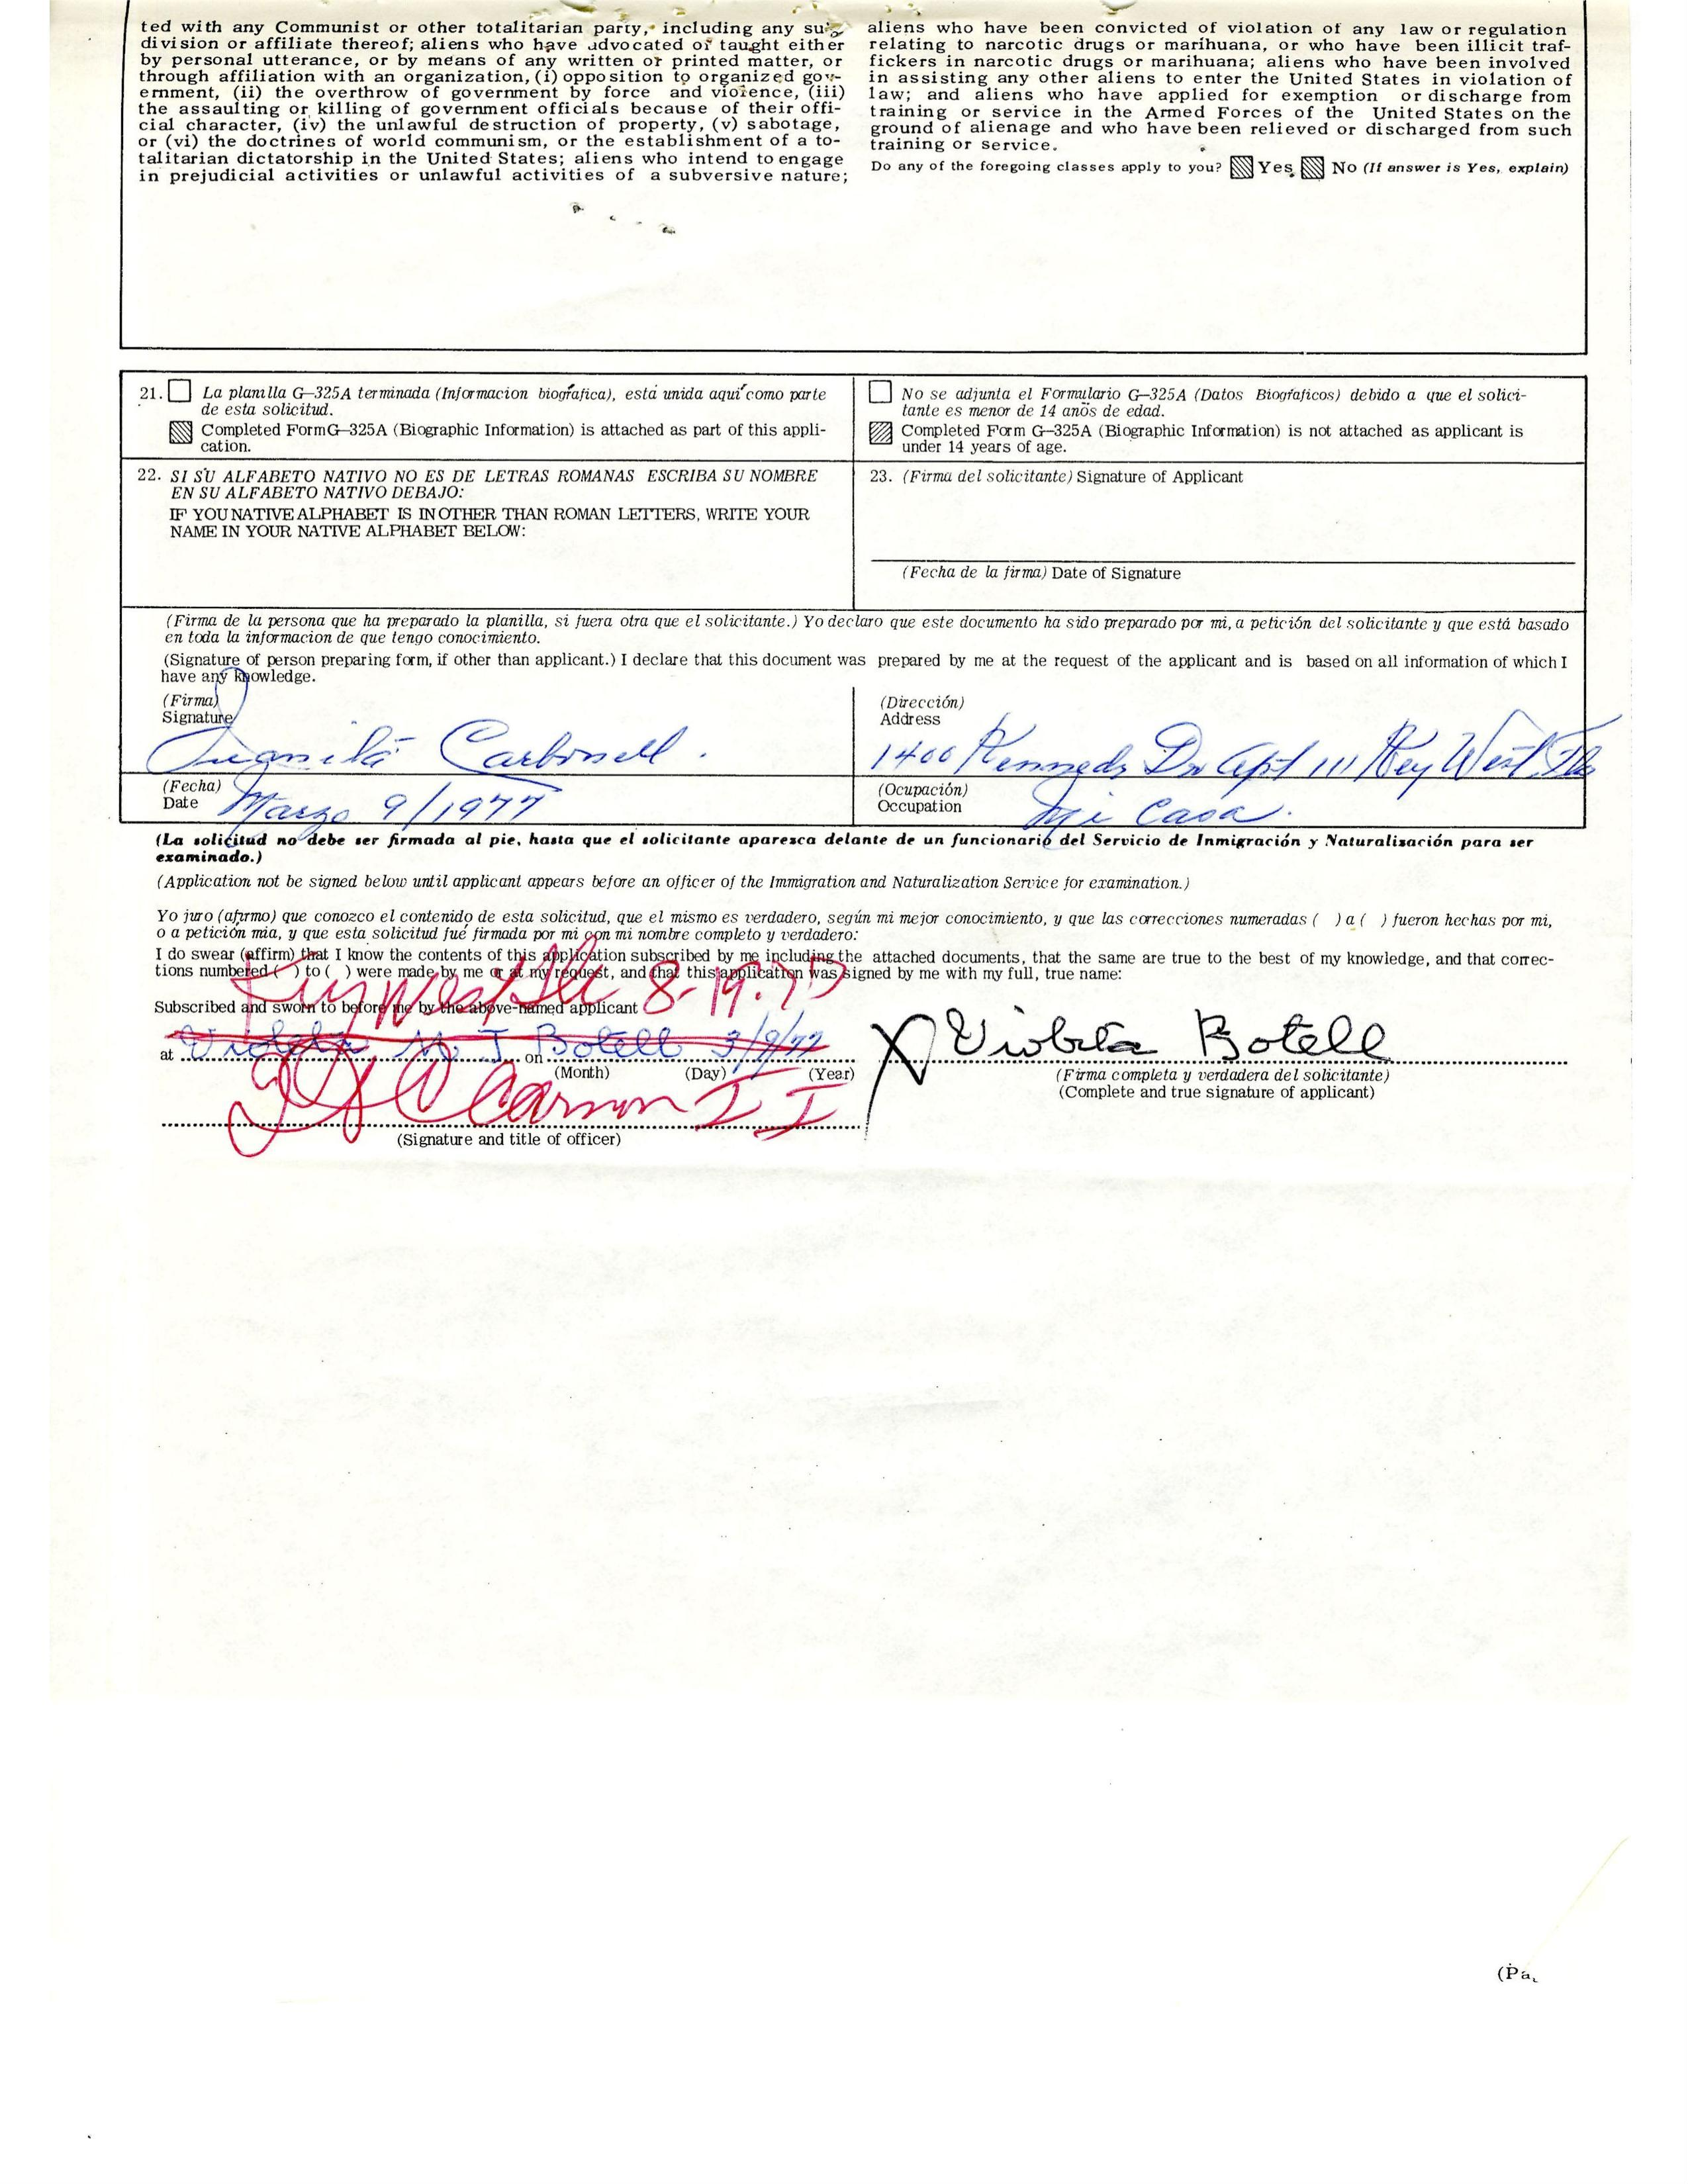 ted with any Communist or other totalitarian party, including any sub-
division or affiliate thereof; aliens who have advocated or taught either
by personal utterance, or by means of any written or printed matter, or
through affiliation with an organization, (i) opposition to organized gov-
ernment, (ii) the overthrow of government by force and violence, (iii)
the assaulting or killing of government officials because of their offi-
cial character, (iv) the unlawful destruction of property, (v) sabotage,
or (vi) the doctrines of world communism, or the establishment of a to-
talitarian dictatorship in the United States; aliens who intend to engage
in prejudicial activities or unlawful activities of a subversive nature;
aliens who have been convicted of violation of any law or regulation
relating to narcotic drugs or marihuana, or who have been illicit traf-
fickers in narcotic drugs or marihuana; aliens who have been involved
in assisting any other aliens to enter the United States in violation of
law; and aliens who have applied for exemption or discharge from
training or service in the Armed Forces of the United States on the
ground of alienage and who have been relieved or discharged from such
training or service.
Do any of the foregoing classes apply to you? Yes No (If answer is Yes, explain)
21. La planilla G-325A terminada (Informacion biográfica), está unida aquí como parte
de esta solicitud.
Completed Form G-325A (Biographic Information) is attached as part of this appli-
cation.
No se adjunta el Formulario G-325A (Datos Biográficos) debido a que el solici-
tante es menor de 14 años de edad.
Completed Form G-325A (Biographic Information) is not attached as applicant is
under 14 years of age.
22. SI SU ALFABETO NATIVO NO ES DE LETRAS ROMANAS ESCRIBA SU NOMBRE
EN SU ALFABETO NATIVO DEBAJO:
IF YOU NATIVE ALPHABET IS IN OTHER THAN ROMAN LETTERS, WRITE YOUR
NAME IN YOUR NATIVE ALPHABET BELOW:
23. (Firma del solicitante) Signature of Applicant
(Fecha de la firma) Date of Signature
(Firma de la persona que ha preparado la planilla, si fuera otra que el solicitante.) Yo declaro que este documento ha sido preparado por mi, a petición del solicitante y que está basado
en toda la informacion de que tengo conocimiento.
(Signature of person preparing form, if other than applicant.) I declare that this document was prepared by me at the request of the applicant and is based on all information of which I
have any knowledge.
(Firma)
Signature
Juanita Carbonell.
(Dirección)
Address
1400 Kennedy Dr Apt 111 Key West Fla
(Fecha)
Date Marzo 9/1977
(Ocupación)
Occupation Mi Casa.
(La solicitud no debe ser firmada al pie, hasta que el solicitante aparesca delante de un funcionario del Servicio de Inmigración y Naturalisación para ser
examinado.)
(Application not be signed below until applicant appears before an officer of the Immigration and Naturalization Service for examination.)
Yo juro (afirmo) que conozco el contenido de esta solicitud, que el mismo es verdadero, según mi mejor conocimiento, y que las correcciones numeradas ( ) a ( ) fueron hechas por mi,
o a petición mia, y que esta solicitud fué firmada por mi con mi nombre completo y verdadero:
I do swear (affirm) that I know the contents of this application subscribed by me including the attached documents, that the same are true to the best of my knowledge, and that correc-
tions numbered ( ) to ( ) were made by me or at my request, and that this application was signed by me with my full, true name:
Key West Fla 8-19-77
Subscribed and sworn to before me by the above-named applicant
at Violeta M. J. Botell on 3/9/77
(Month) (Day) (Year)
X Violeta Botell
(Firma completa y verdadera del solicitante)
(Complete and true signature of applicant)
(Signature and title of officer)